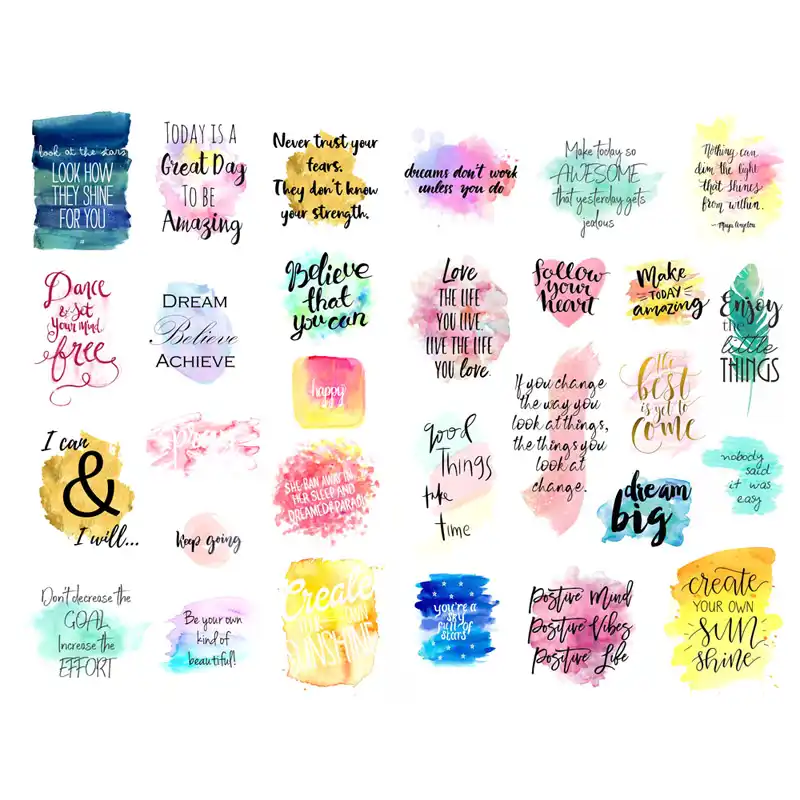 look at the stars
LOOK HOW
THEY SHINE
FOR YOU
TODAY IS A
Great Day
TO BE
Amazing
Never trust your
fears.
They don't know
your strength.
dreams don't work
unless you do
Make today so
AWESOME
that yesterday gets
jealous
Nothing can
dim the light
that shines
from within.
~Maya Angelou
Dance
& set
your mind
free
DREAM
Believe
ACHIEVE
Believe
that
you can
Love
THE LIFE
YOU LIVE.
LIVE THE LIFE
YOU love.
follow
your
heart
Make
TODAY
amazing
Enjoy
the
little
THINGS
happy
If you change
the way you
look at things,
the things you
look at
change.
the
best
is yet to
come
I can
&
I will...
good
Things
take
time
nobody
said
it was
easy
SHE RAN AWAY IN
HER SLEEP AND
DREAMED OF PARADISE
dream
big
keep going
Don't decrease the
GOAL
Increase the
EFFORT
Be your own
kind of
beautiful!
Create
YOUR OWN
SUNSHINE
you're a
sky
full of
stars
Positive Mind
Positive Vibes
Positive Life
create
YOUR OWN
sun
shine